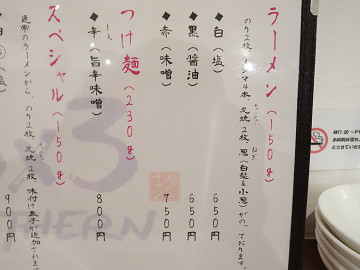 ラーメン(150g)
のり2枚、メンマ4本、叉焼2枚、葱(白髪&小葱)がのっております。
ねぎ
◆白(塩) 650円
◆黒(醤油) 650円
◆赤(味噌) 750円
つけ麺(230g)
しん
◆辛(旨辛味噌) 800円
スペシャル(150g)
通常のラーメンから、のり2枚、叉焼2枚、味付け玉子が追加されます
900円